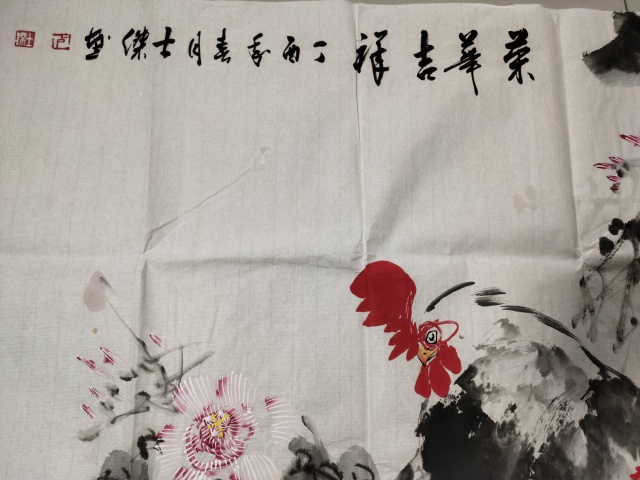 荣華吉祥 丁酉年春月士傑画